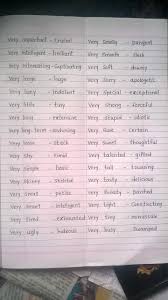 Very important - crucial
Very intelligent - brilliant
Very interesting - captivating
Very large - huge
Very lazy - indolent
Very little - tiny
Very long - extensive
Very long-term - enduring
Very loose - slack
Very shy - timid
Very simple - basic
Very skinny - skeletal
Very small - petite
Very smart - intelligent
Very tired - exhausted
Very ugly - hideous
Very smelly - pungent
Very smooth - sleek
Very soft - downy
Very sorry - apologetic
Very special - exceptional
Very strong - forceful
Very stupid - idiotic
Very sweet - thoughtful
Very talented - gifted
Very tall - towering
Very tasty - delicious
Very tight - constricting
Very tiny - minuscule
Very busy - swamped